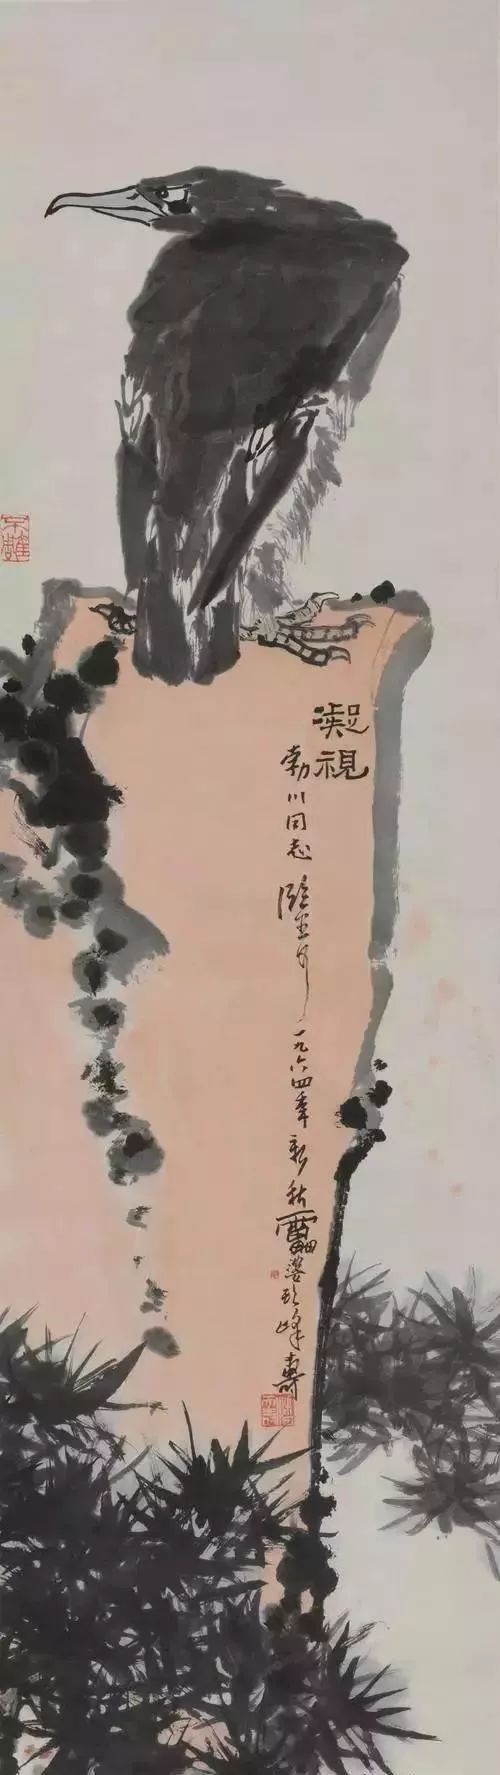 凝視
勃川同志正一九六四年新秋靁婆頭峰壽
不雕